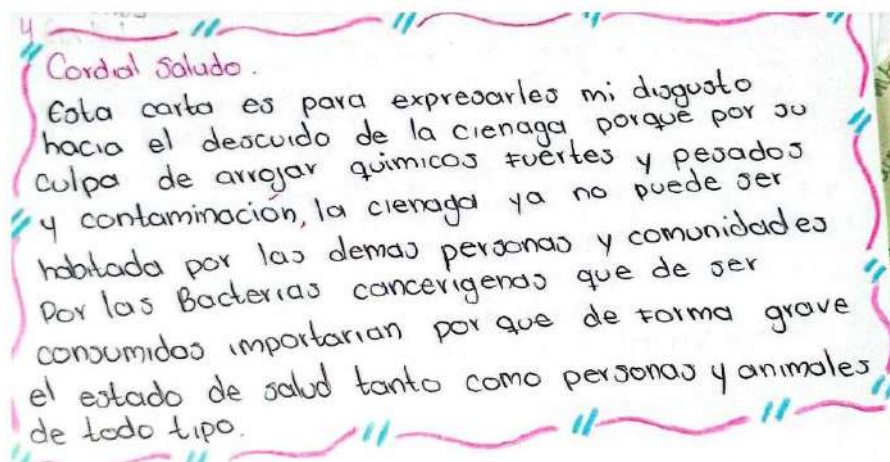 4
Cordial Saludo.
Esta carta es para expresarles mi disgusto
hacia el descuido de la cienaga porque por su
culpa de arrojar quimicos fuertes y pesados
y contaminación, la cienaga ya no puede ser
habitada por las demas personas y comunidades
Por las Bacterias cancerigenas que de ser
consumidas importarian por que de forma grave
el estado de salud tanto como personas y animales
de todo tipo.